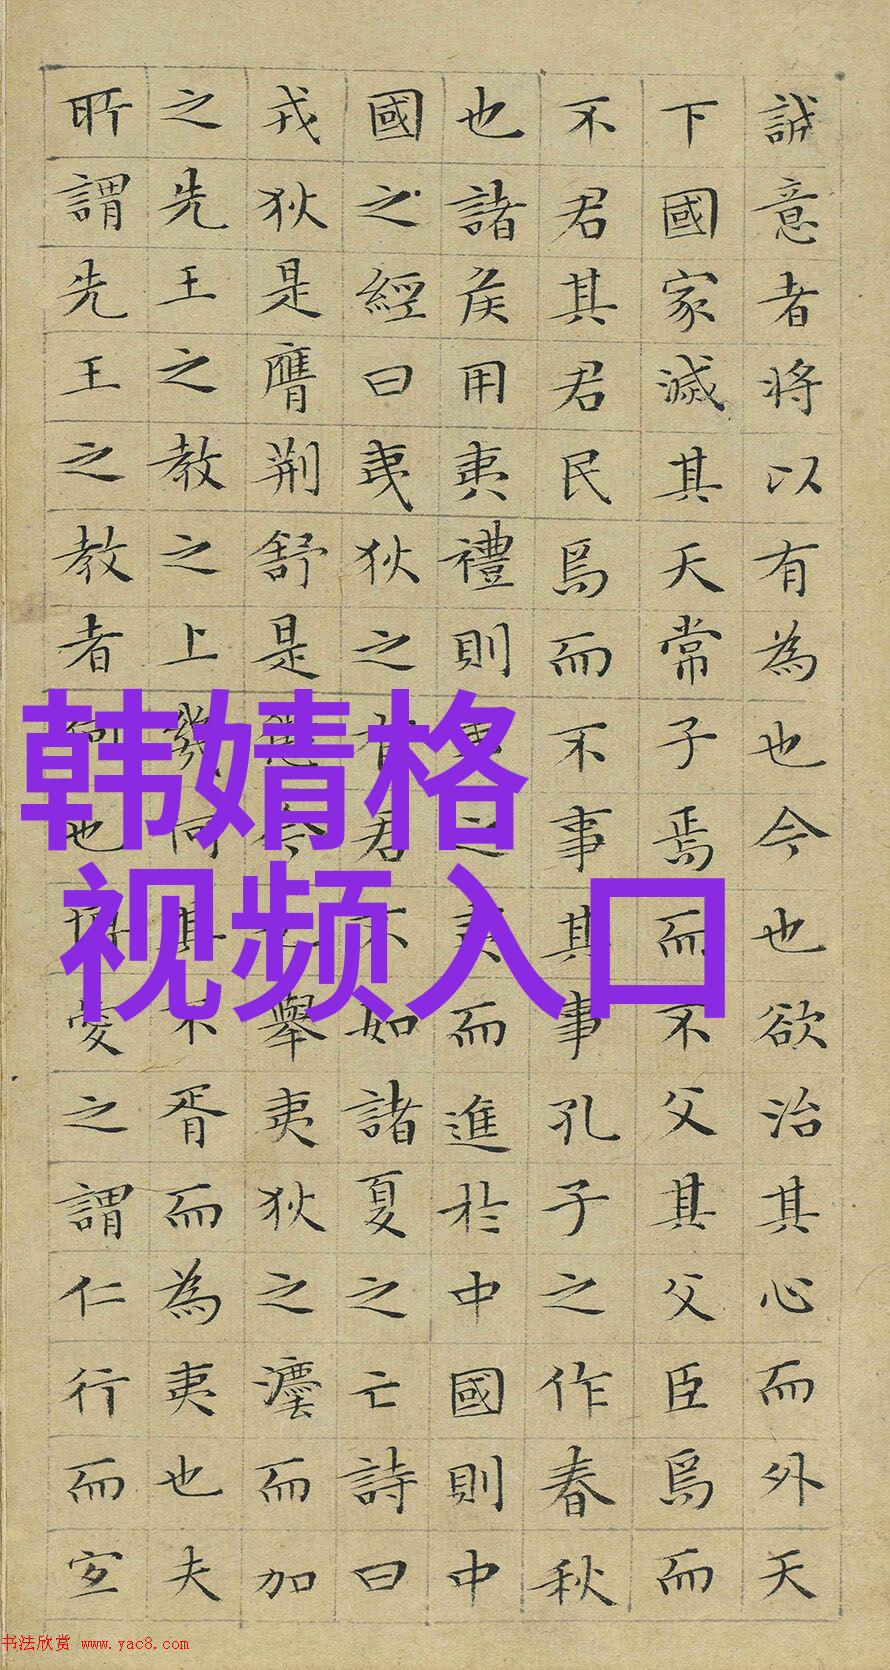 誠意者将以有為也今也欲治其心而外天
下國家滅其天常子焉而不父其父臣焉而
不君其君民焉而不事其事孔子之作春秋
也諸侯用夷禮則夷之夷而進於中國則中
國之經曰夷狄之有君不如諸夏之亡詩曰
戎狄是膺荆舒是懲今也舉夷狄之灋而加
之先王之教之上幾何其不胥而為夷也夫
所謂先王之教者何也博愛之謂仁行而宜
韩婧格
视频入口
书法欣赏 www.yac8.com